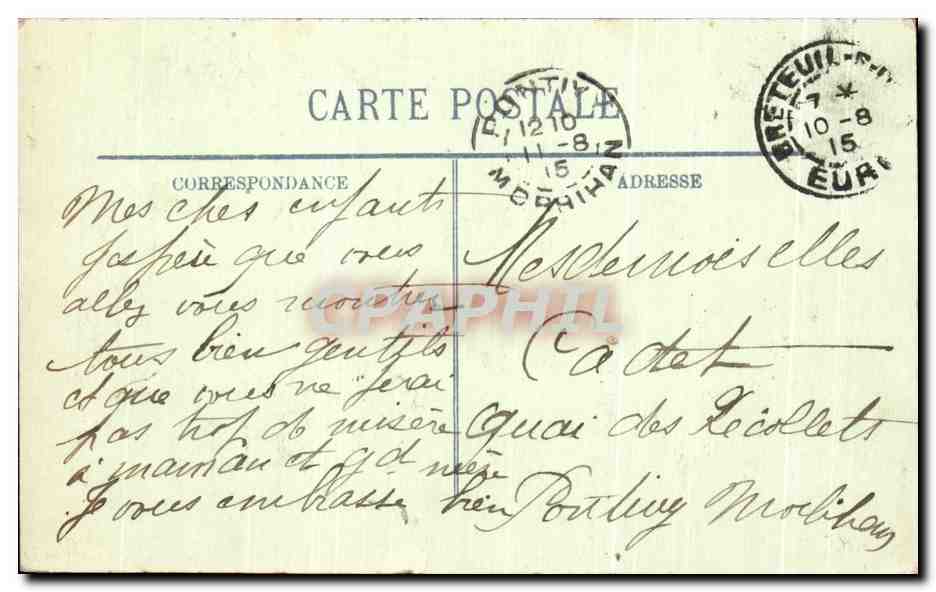 CARTE POSTALE
PONTIVY
12 10
11-8
15
MORBIHAN
BRETEUIL-S-
7 *
10-8
15
EURE
CORRESPONDANCE
ADRESSE
Mes ches enfants
J'espère que vous
allez vous montres
tous bien gentils
et que vous ne ferai
pas trop de misère
à maman et gd mère
Je vous embrasse bien
Mesdemoiselles
Cadet
Quai des Récollets
Pontivy Morbihan
CPAPHIL